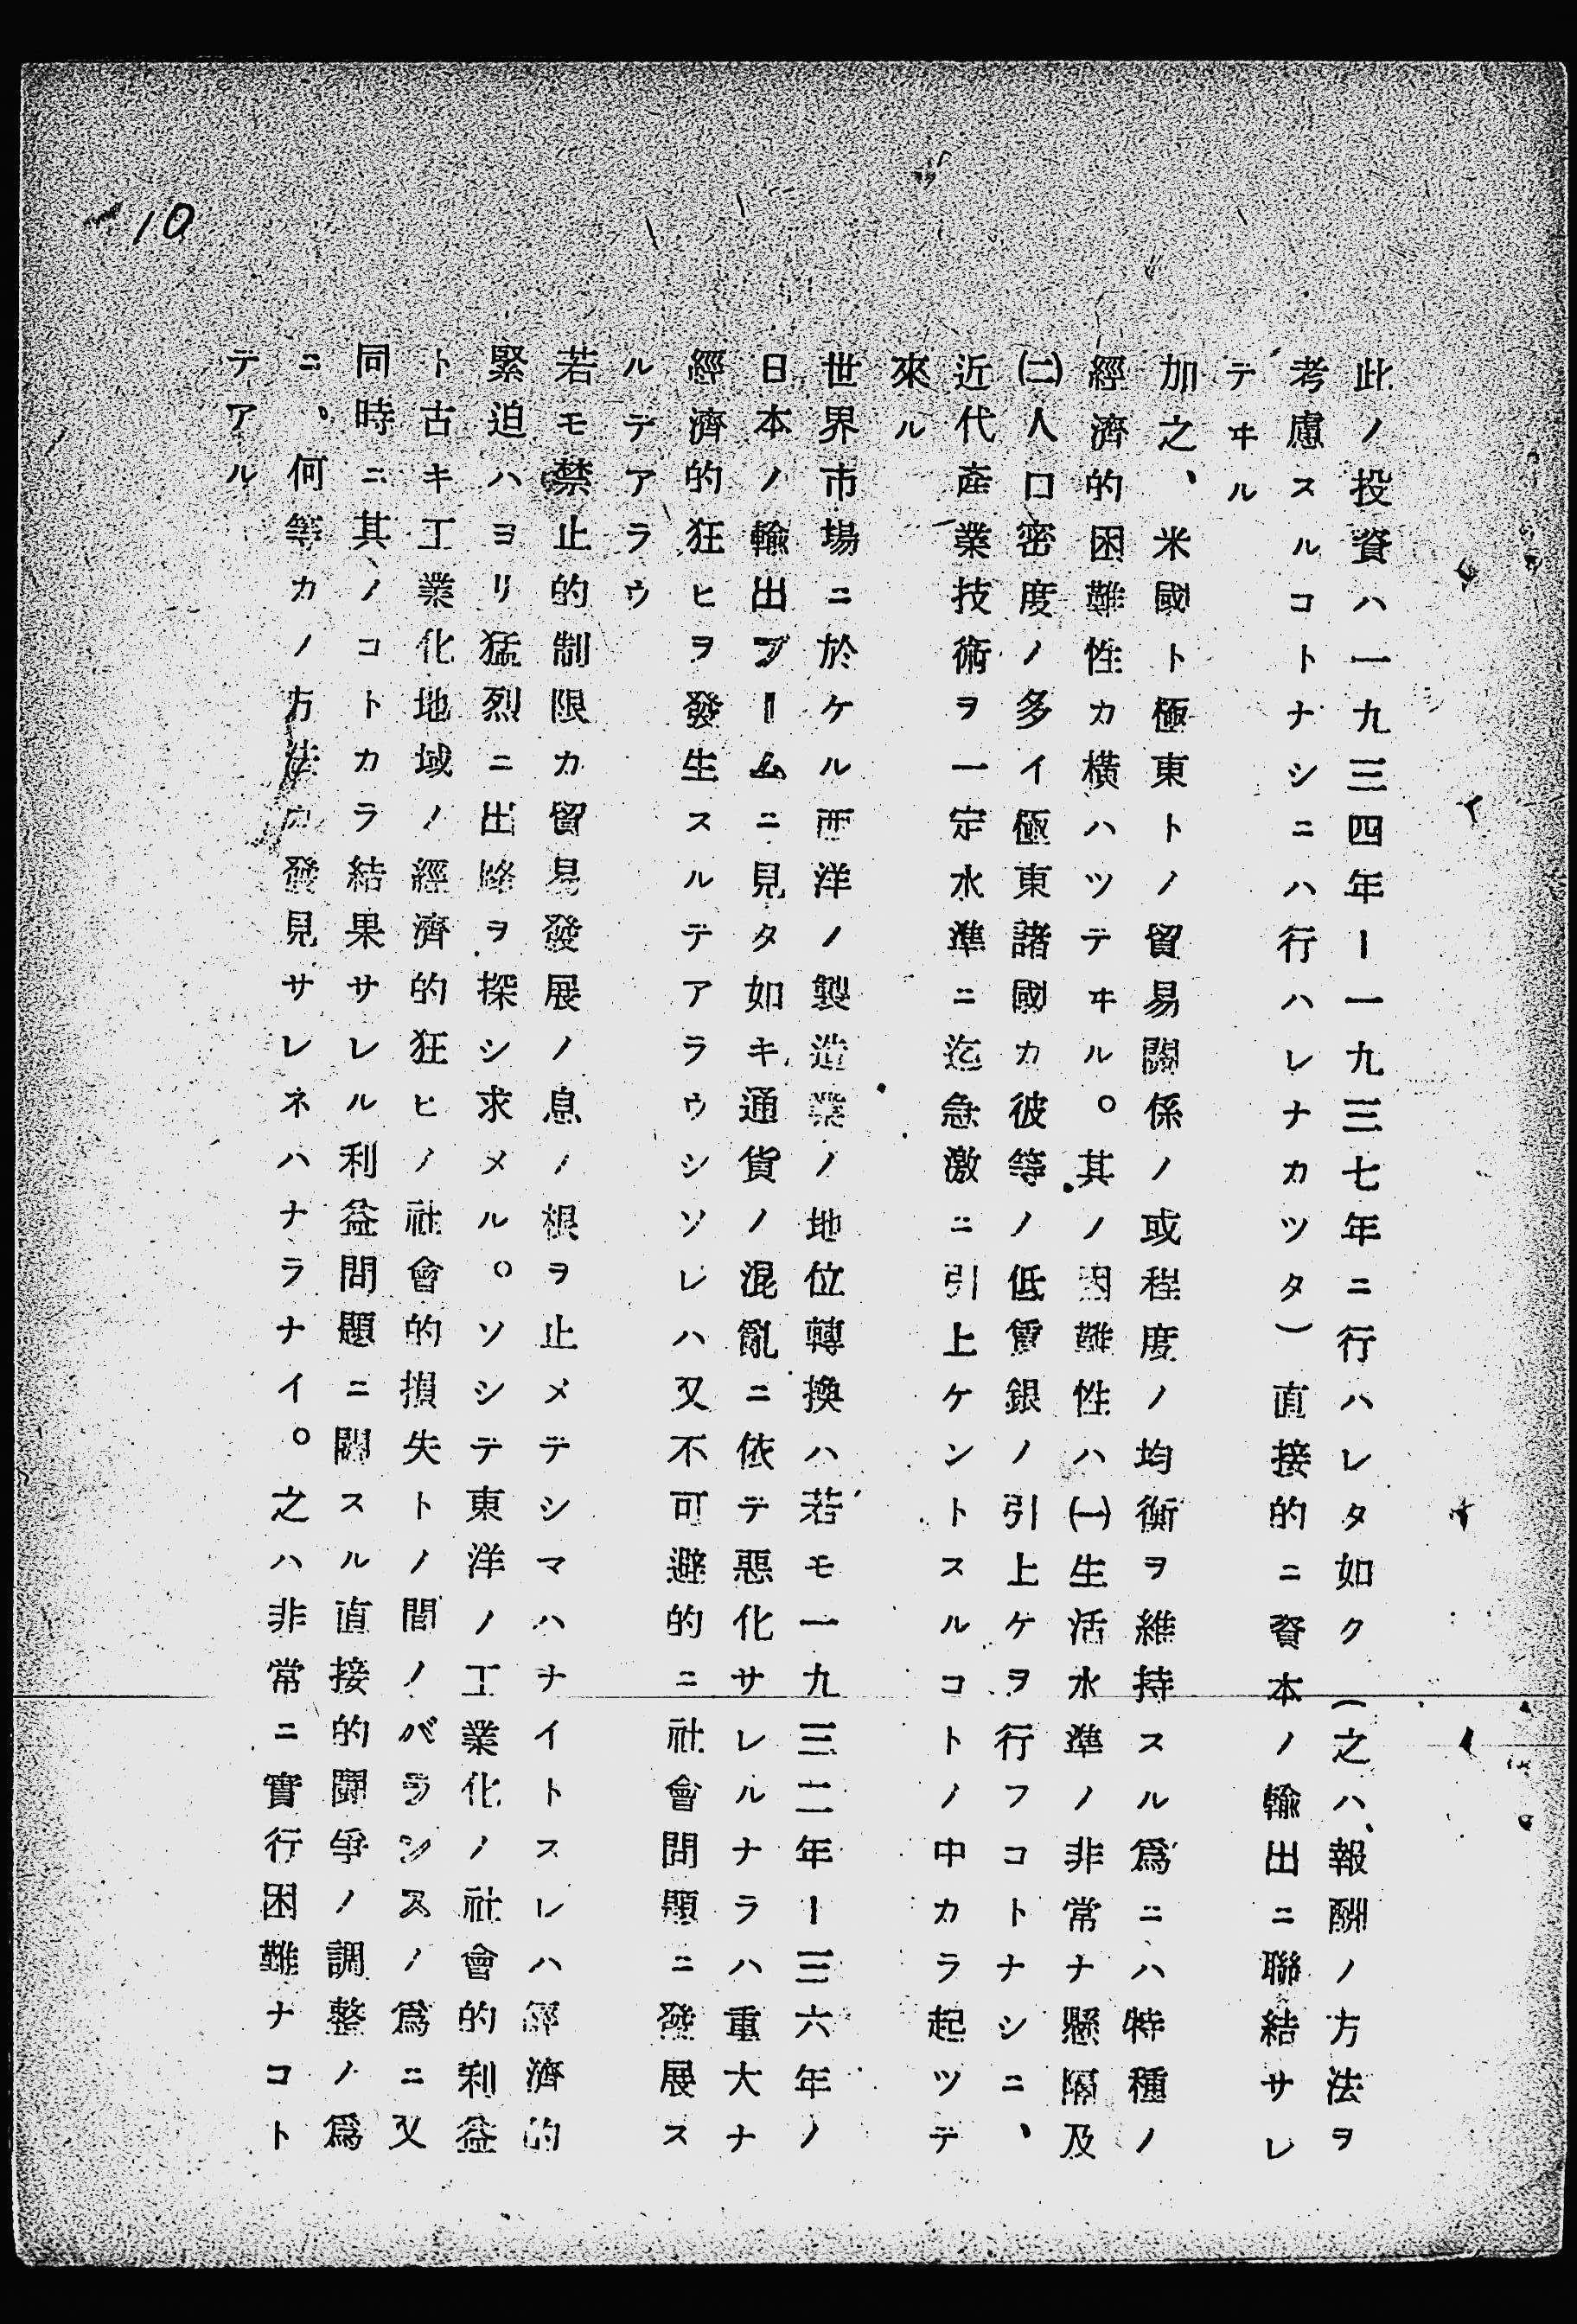 10
此ノ投資ハ一九三四年ー一九三七年ニ行ハレタ如ク(之ハ、報酬ノ方法ヲ
考慮スルコトナシニハ行ハレナカツタ)直接的ニ資本ノ輸出ニ聯結サレ
テヰル
加之、米國ト極東トノ貿易關係ノ或程度ノ均衡ヲ維持スル爲ニハ特種ノ
經濟的困難性カ横ハツテヰル。其ノ困難性ハ(一)生活水準ノ非常ナ懸隔及
(二)人口密度ノ多イ極東諸國カ彼等ノ低賃銀ノ引上ケヲ行フコトナシニ、
近代産業技術ヲ一定水準ニ迄急激ニ引上ケントスルコトノ中カラ起ツテ
來ル
世界市場ニ於ケル西洋ノ製造業ノ地位轉換ハ若モ一九三二年ー三六年ノ
日本ノ輸出ブームニ見タ如キ通貨ノ混亂ニ依テ惡化サレルナラハ重大ナ
經濟的狂ヒヲ發生スルテアラウシソレハ又不可避的ニ社會問題ニ發展ス
ルテアラウ
若モ禁止的制限カ貿易發展ノ息ノ根ヲ止メテシマハナイトスレハ經濟的
緊迫ハヨリ猛烈ニ出路ヲ探シ求メル。ソシテ東洋ノ工業化ノ社會的利益
ト古キ工業化地域ノ經濟的狂ヒノ社會的損失トノ間ノバランスノ爲ニ又
同時ニ其ノコトカラ結果サレル利益問題ニ關スル直接的鬪爭ノ調整ノ爲
ニ、何等カノ方法カ發見サレネハナラナイ。之ハ非常ニ實行困難ナコト
テアル